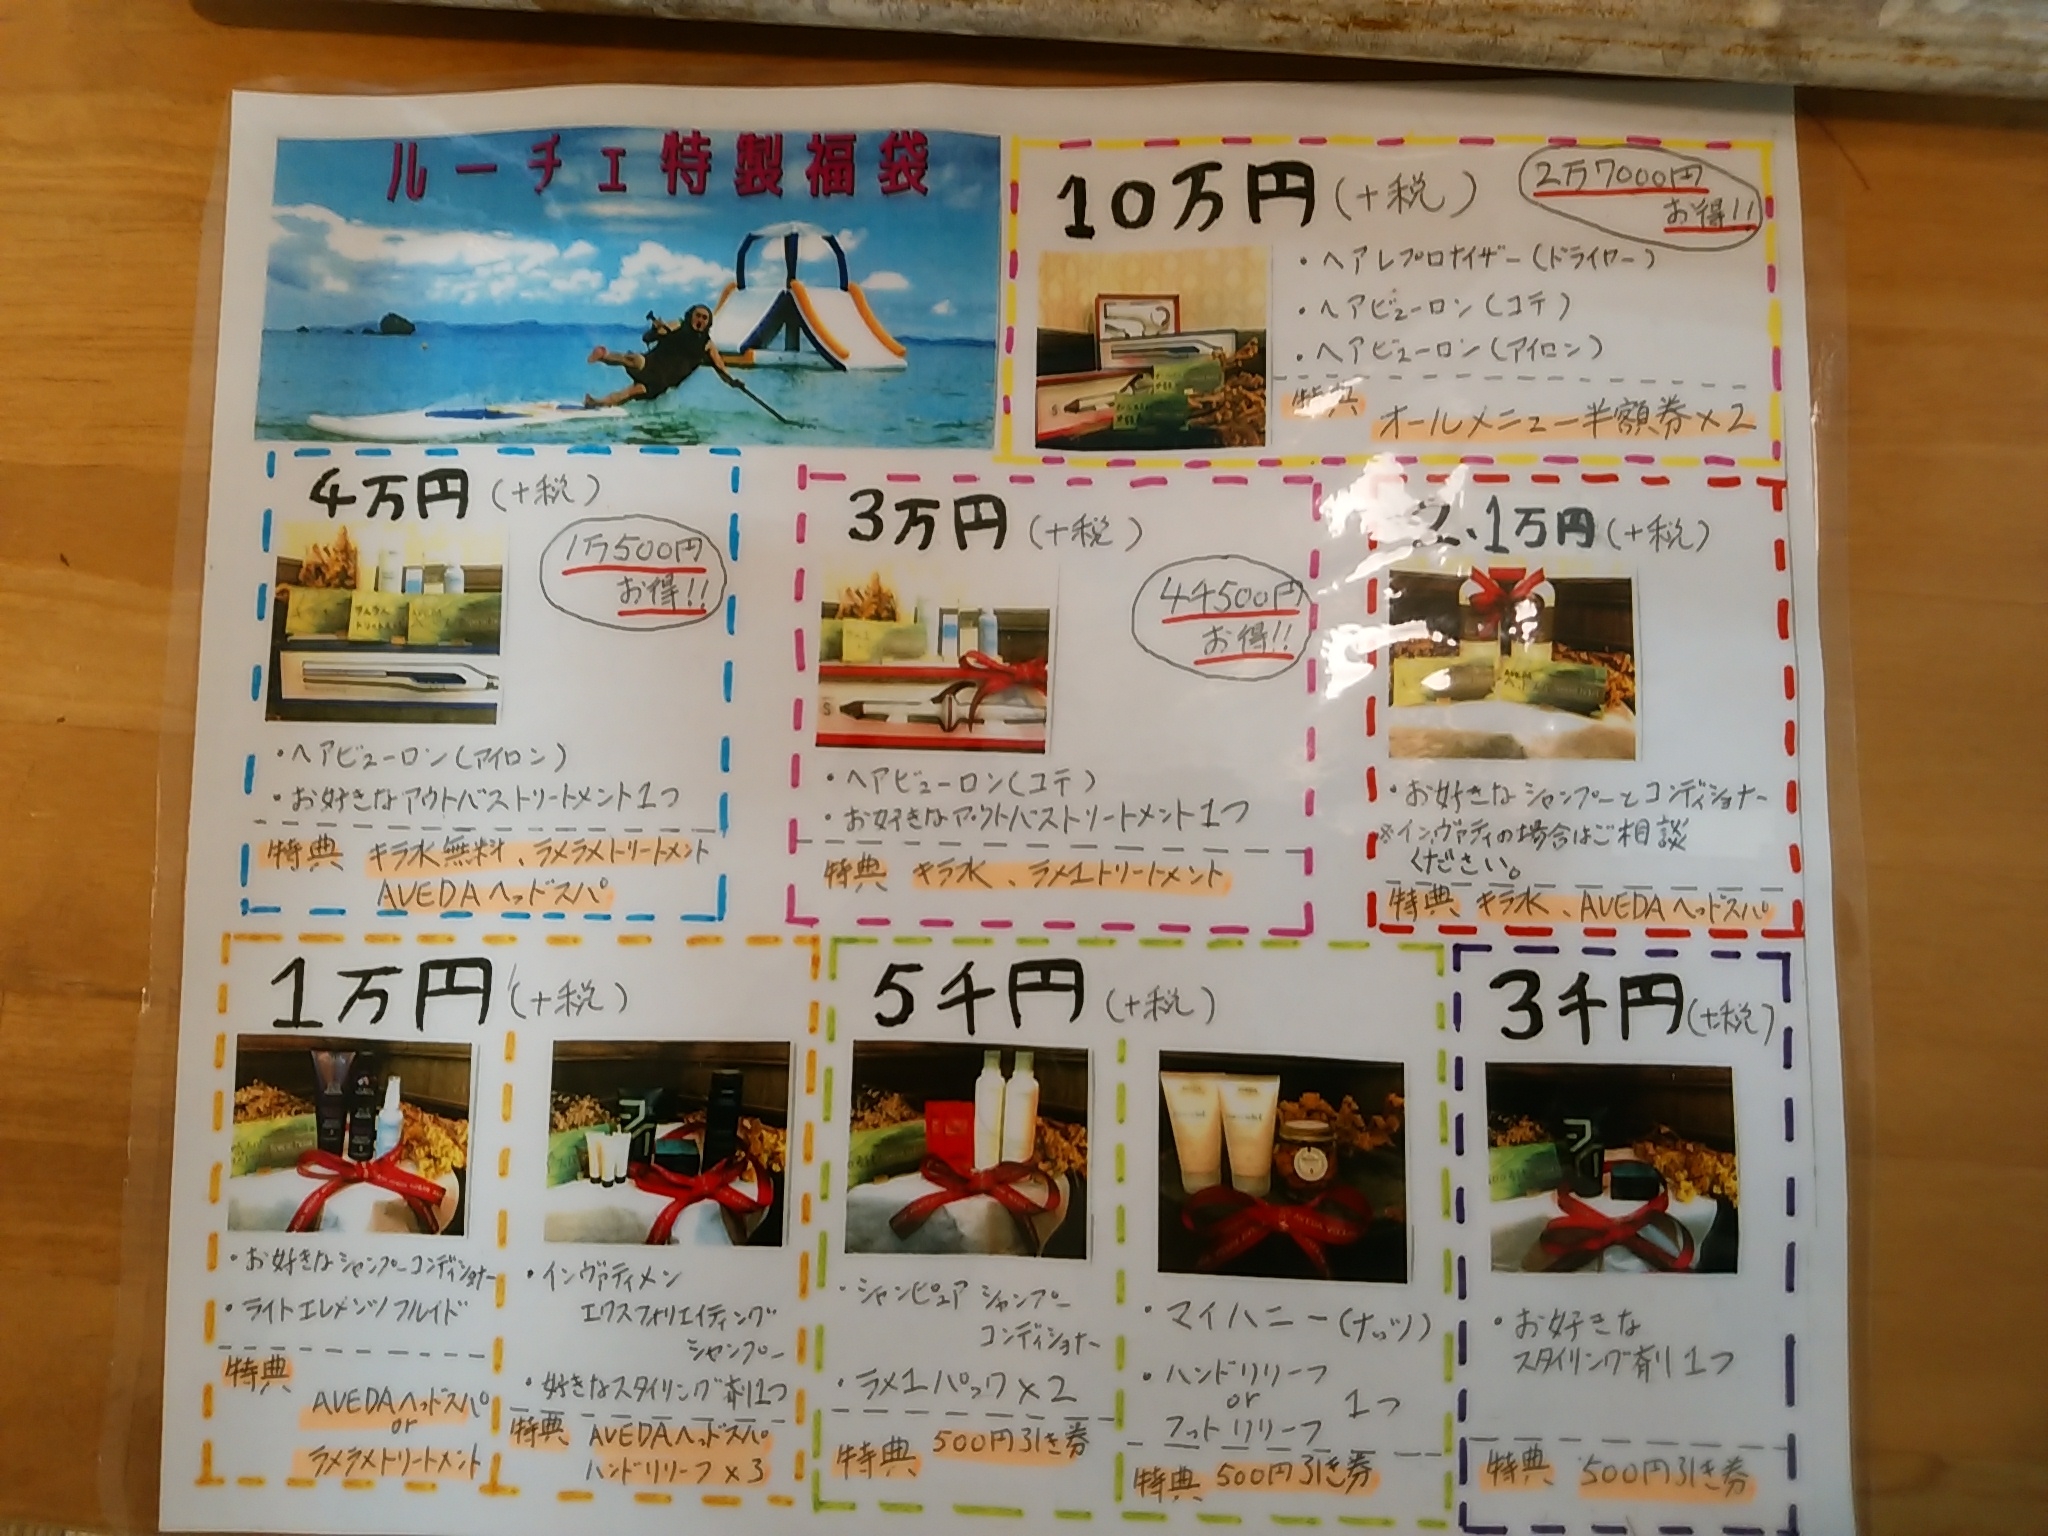 ルーチェ特製福袋
10万円(+税)
2万7000円
お得!!
・ヘアレプロナイザー(ドライヤー)
・ヘアビューロン(コテ)
・ヘアビューロン(アイロン)
特典
オールメニュー半額券×2
4万円(+税)
1万500円
お得!!
・ヘアビューロン(アイロン)
・お好きなアウトバストリートメント1つ
特典 キラ水無料、ラメラメトリートメント
AVEDAヘッドスパ
3万円(+税)
44500円
お得!!
・ヘアビューロン(コテ)
・お好きなアウトバストリートメント1つ
特典 キラ水、ラメ1トリートメント
2.1万円(+税)
・お好きなシャンプーとコンディショナー
※インヴァティの場合はご相談
ください。
特典 キラ水、AVEDAヘッドスパ
1万円(+税)
・お好きなシャンプーコンディショナー
・ライトエレメンツフルイド
特典
AVEDAヘッドスパ
or
ラメラメトリートメント
・インヴァティメン
エクスフォリエイティング
シャンプー
・好きなスタイリング剤1つ
特典 AVEDAヘッドスパ
ハンドリリーフ×3
5千円(+税)
・シャンピュア シャンプー
コンディショナー
・ラメ1パック×2
特典 500円引き券
・マイハニー(ナッツ)
・ハンドリリーフ
or
フットリリーフ 1つ
特典 500円引き券
3千円(+税)
・お好きな
スタイリング剤1つ
特典 500円引き券